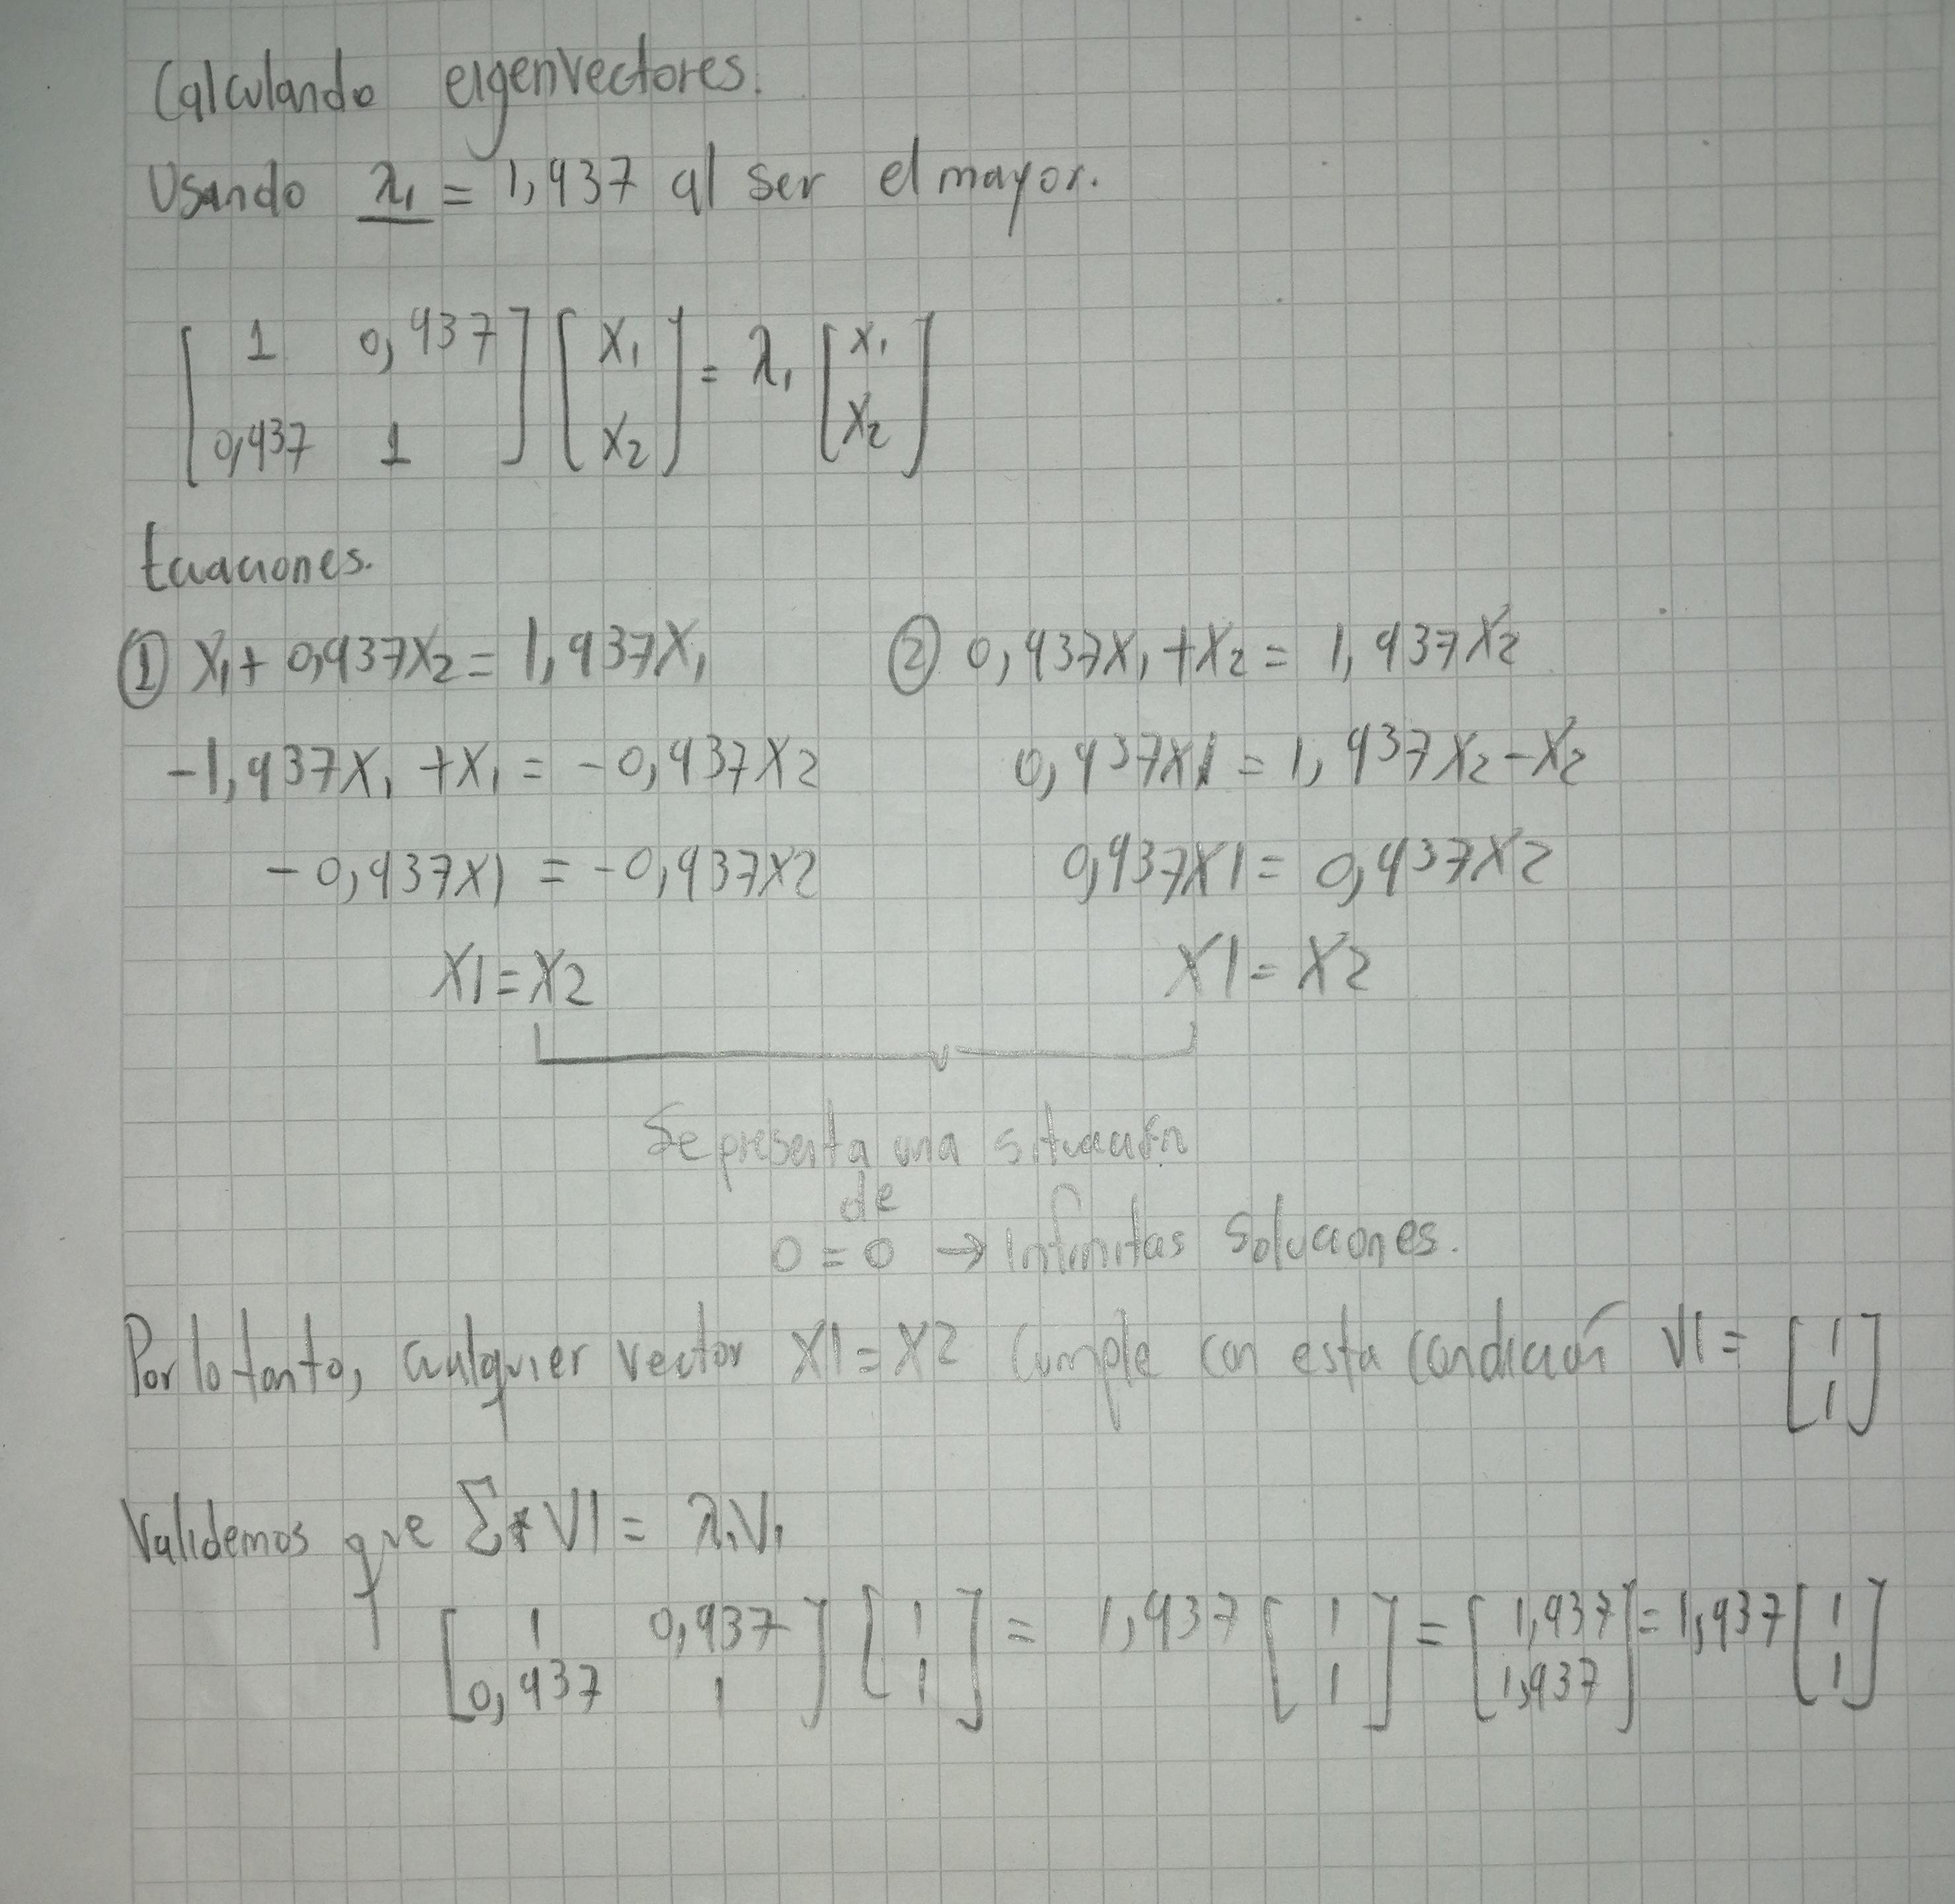 Calculando eigenvectores.
Usando λ₁ = 1,937 al ser el mayor.
[1 0,937] [x₁] = λ₁ [x₁]
[0,937 1] [x₂] [x₂]
Ecuaciones.
① X₁ + 0,937X₂ = 1,937X₁ ② 0,937X₁ + X₂ = 1,937X₂
-1,937X₁ + X₁ = -0,937X2 0,937X1 = 1,937X₂ - X₂
-0,937X1 = -0,937X2 0,937X1 = 0,937X2
X1 = X2 X1 = X2
Se presenta una situación
de
0 = 0 → Infinitas soluciones.
Por lo tanto, cualquier vector X1 = X2 cumple con esta condición V1 = [1]
[1]
Validemos que Σ * V1 = λ₁V₁
[1 0,937] [1] = 1,937 [1] = [1,937] = 1,937 [1]
[0,937 1] [1] [1] [1,937] [1]